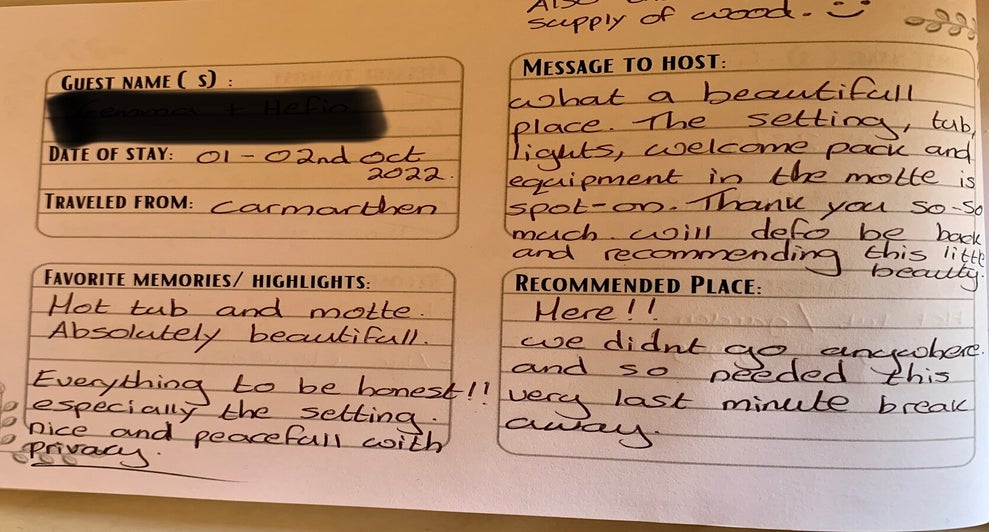 supply of wood. :)
GUEST NAME( S) :
DATE OF STAY: 01 - 02nd Oct
2022.
TRAVELED FROM: Carmarthen
MESSAGE TO HOST:
what a beautifull
place. The setting, tub,
lights, welcome pack and
equipment in the motte is
spot-on. Thank you so-so
much. will defo be back
and recommending this little
beauty.
FAVORITE MEMORIES/ HIGHLIGHTS:
Hot tub and motte.
Absolutely beautifull.
Everything to be honest!!
especially the setting.
nice and peacefull with
privacy.
RECOMMENDED PLACE:
Here!!
we didnt go anywhere.
and so needed this
very last minute break
away.